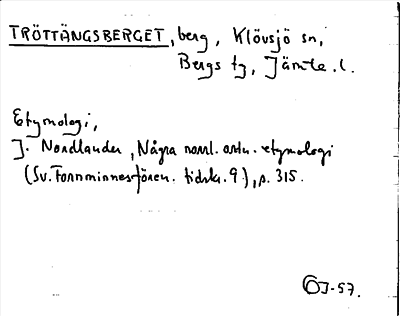 TRÖTTÄNGSBERGET, berg, Klövsjö sn,
Bergs tg, Jämtl. l.
Etymologi,
J. Nordlander, Några norrl. ortn. etymologi
(Sv. Fornminnesfören. tidskr. 9), s. 315.
OJ-57.